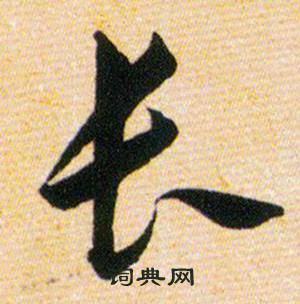 长
词典网